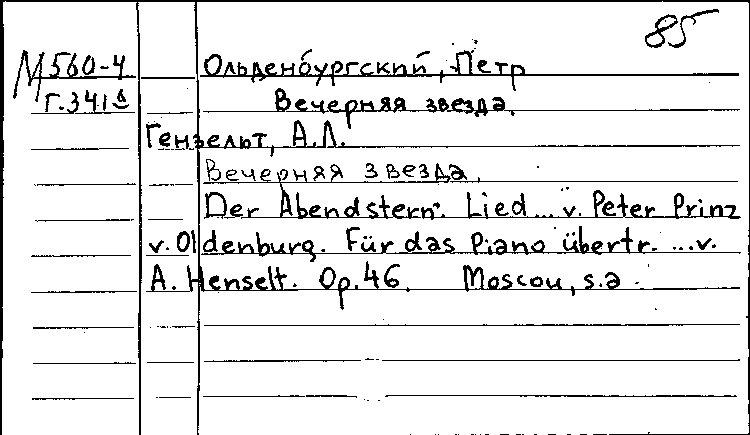 85
М 560-4 Ольденбургский, Петр
Г.341 Вечерняя звезда.
Гензельт, А.Л.
Вечерняя звезда.
Der Abendstern. Lied... v. Peter Prinz
v. Oldenburg. Für das Piano übertr. ...v.
A. Henselt. Op.46. Moscou, s.a.